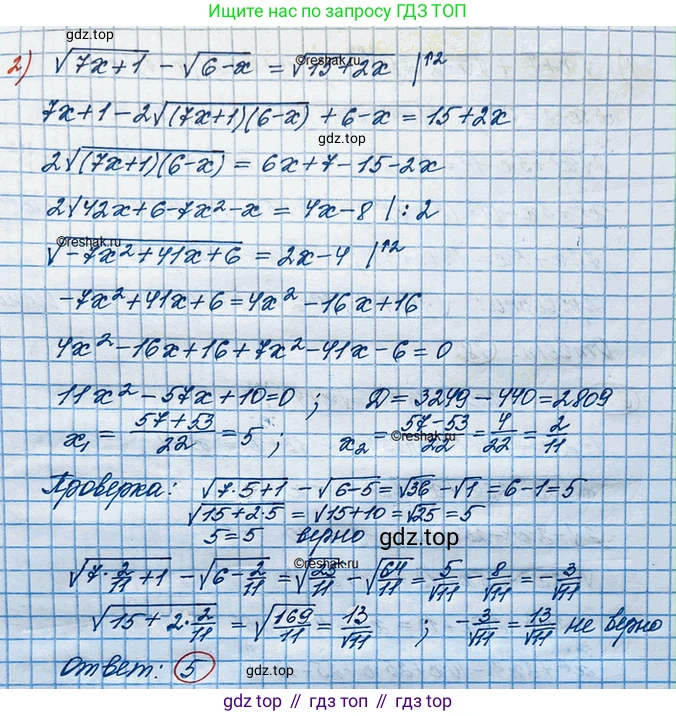 Ищите нас по запросу ГДЗ ТОП
2) √(7x+1) - √(6-x) = √(15+2x) |↑2
©reshak.ru
7x+1-2√((7x+1)(6-x)) + 6-x = 15+2x
gdz.top
2√((7x+1)(6-x)) = 6x+7-15-2x
2√(42x+6-7x²-x) = 4x-8 | : 2
©reshak.ru
√(-7x²+41x+6) = 2x-4 |↑2
-7x²+41x+6=4x²-16x+16
4x²-16x+16+7x²-41x-6=0
11x²-57x+10=0 ; D=3249-440=2809
x₁ = (57+53)/22 = 5 ; x₂ = (57-53)/22 = 4/22 = 2/11
©reshak.ru
Проверка: √(7·5+1) - √(6-5) = √36 - √1 = 6-1=5
√(15+2·5) = √(15+10) = √25 = 5
5=5 верно gdz.top
©reshak.ru
√(7·2/11+1) - √(6-2/11) = √(25/11) - √(64/11) = 5/√11 - 8/√11 = -3/√11
√(15+2·2/11) = √(169/11) = 13/√11 ; -3/√11 = 13/√11 не верно
Ответ: 5 gdz.top
gdz.top // гдз.топ // gdz.top